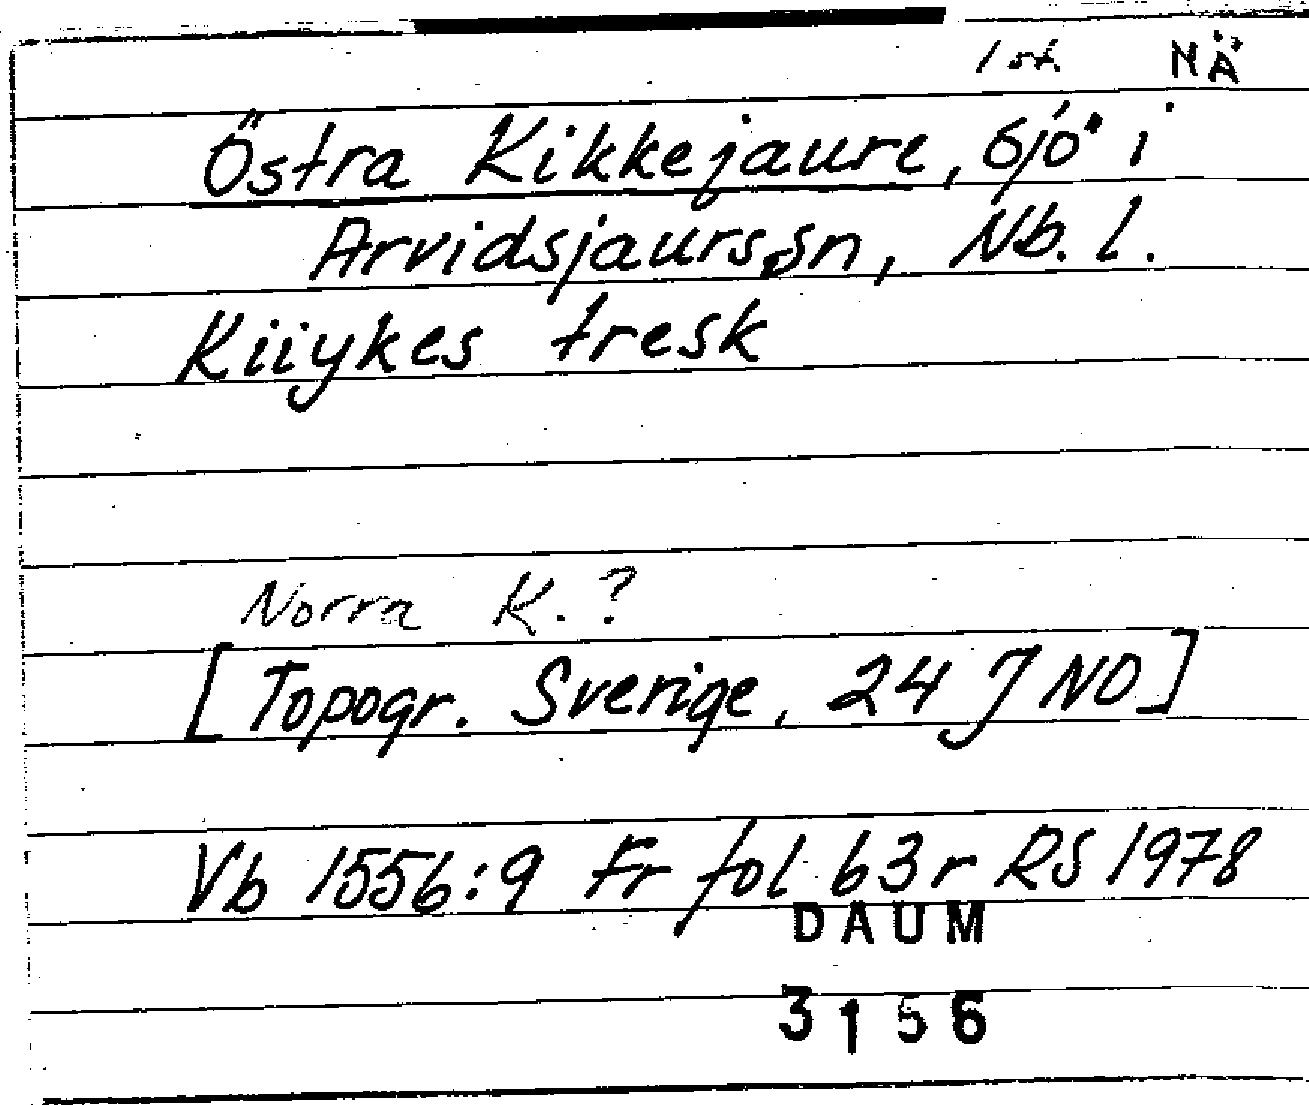 1 sk NÄ
Östra Kikkejaure, sjö i
Arvidsjaurs sn, Nb. l.
Kiiykes tresk
Norra K. ?
[Topogr. Sverige, 24 J NO]
Vb 1556:9 Fr fol 63r RS 1978
DAUM
3156